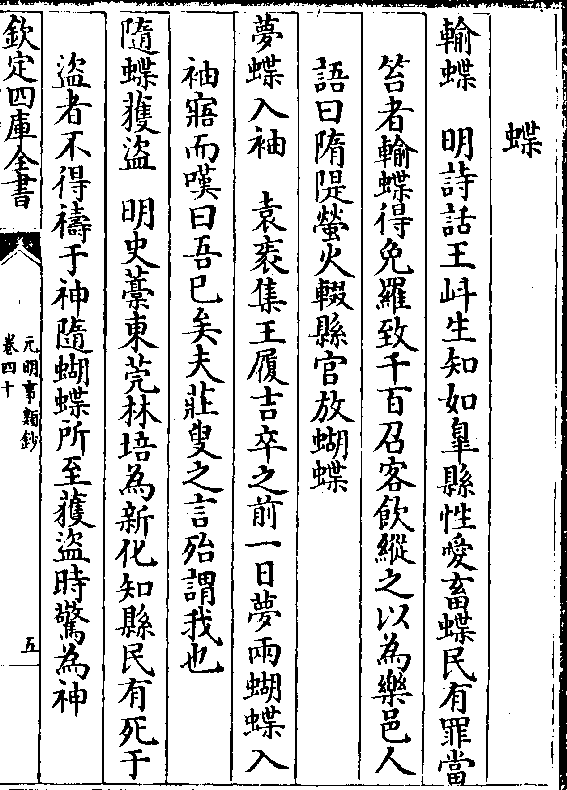 蝶
輸蝶　明詩話王屽生知如臯縣性愛畜蝶民有罪當
笞者輸蝶得免羅致千百召客飲縱之以為樂邑人
語曰隋隄螢火輟縣官放蝴蝶
夢蝶入袖　袁袠集王履吉卒之前一日夢兩蝴蝶入
袖寤而嘆曰吾已矣夫莊叟之言殆謂我也
隨蝶獲盜　明史藁東莞林培為新化知縣民有死于
盜者不得禱于神隨蝴蝶所至獲盜時驚為神
欽定四庫全書
元明事類鈔
卷四十
五